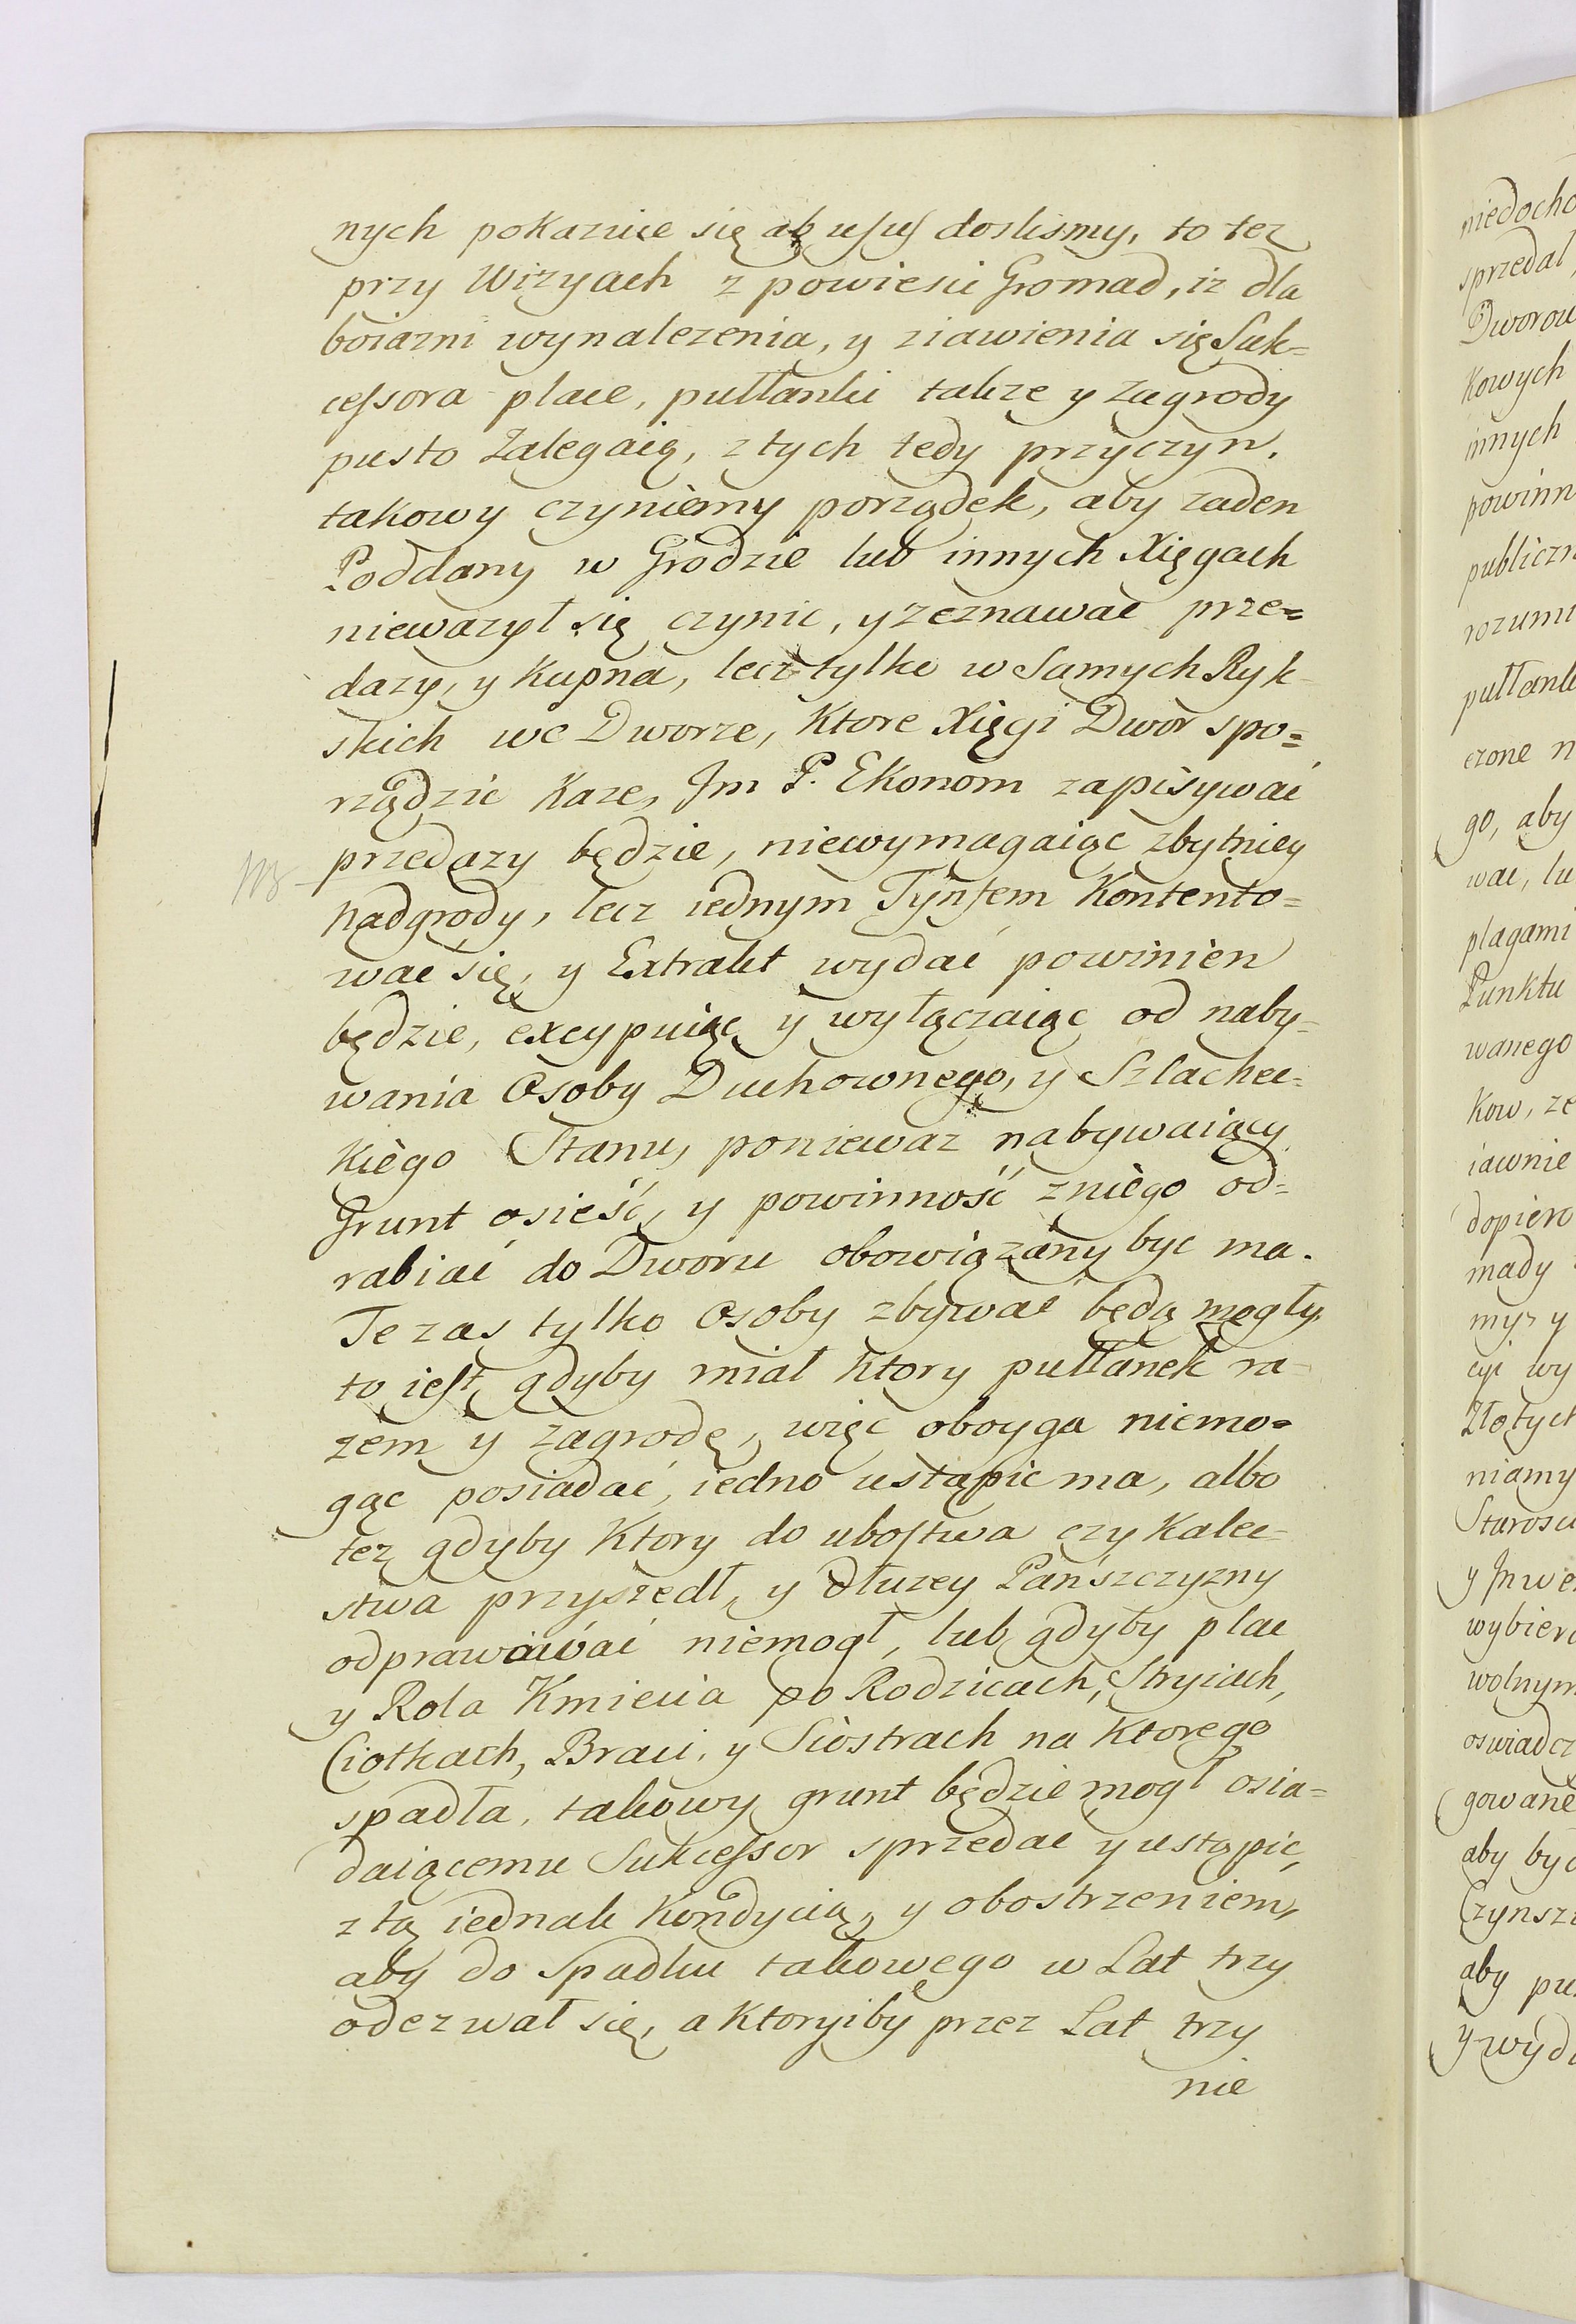 nych pokazuie się abusus doslismy, to tez
przy Wizyach z powiesci Gromad, iz dla
boiazni wynalezenia, y ziawienia się Suk=
cessora place, pułłanki takze y Zagrody
pusto Zalegaią, z tych tedy przyczyn,
takowy czyniemy porządek, aby zaden
Poddany w Grodzie lub innych Xięgach
niewazył się czynic, y zeznawac prze=
dazy, y Kupna, lecz tylko w Samych Ryk
skich we Dworze, Ktore Xięgi Dwor spo=
rządzic Kaze, Jm P. Ekonom zapisywać
przedazy będzie, niewymagaiąc zbytniey
Nadgrody, lecz iednym Tynfem Kontento=
wac się, y Extrakt wydać powinien
będzie, excypuiąc y wyłączaiąc od naby=
wania Osoby Duchownego, y Szlachec=
Kiego Stanu, poniewaz nabywaiący
Grunt osieść, y powinność zniego od=
rabiać do Dworu obowiązany byc ma.
Te zas tylko Osoby zbywac będą mogły,
to iest gdyby miał Ktory pułłanek ra=
zem y Zagrodę, więc oboyga niemo=
gąc posiadać, iedno ustąpic ma, albo
tez gdyby Ktory do ubostwa czy Kalec=
stwa przyszedł, y dłuzey Pańszczyzny
odprawować niemogł, lub gdyby plac
y Rola Kmiecia po Rodzicach, Stryiach,
Ciotkach, Braci, y Siostrach na Ktorego
spadła, takowy grunt będzie mogł osia=
daiącemu Sukcessor sprzedac y ustąpic,
z tą iednak Kondycią, y obostrzeniem,
aby do Spadku takowego w Lat trzy
odezwał się, a Ktoryiby przez Lat trzy
nie
niedocho
sprzedał,
Dworow
Kowych
innych
powinn
publiczn
rozumi
pułłank
czone n
go, aby
wac, lu
plagami
Punktu
wanego
Kow, ze
iawnie
dopiero
mady
my, y
cyi wy
Złotych
niamy
Starosci
y Jnwe
wybiera
wolnym
oswiadcz
gowane
aby byc
Czynszu
aby pu
y wyda